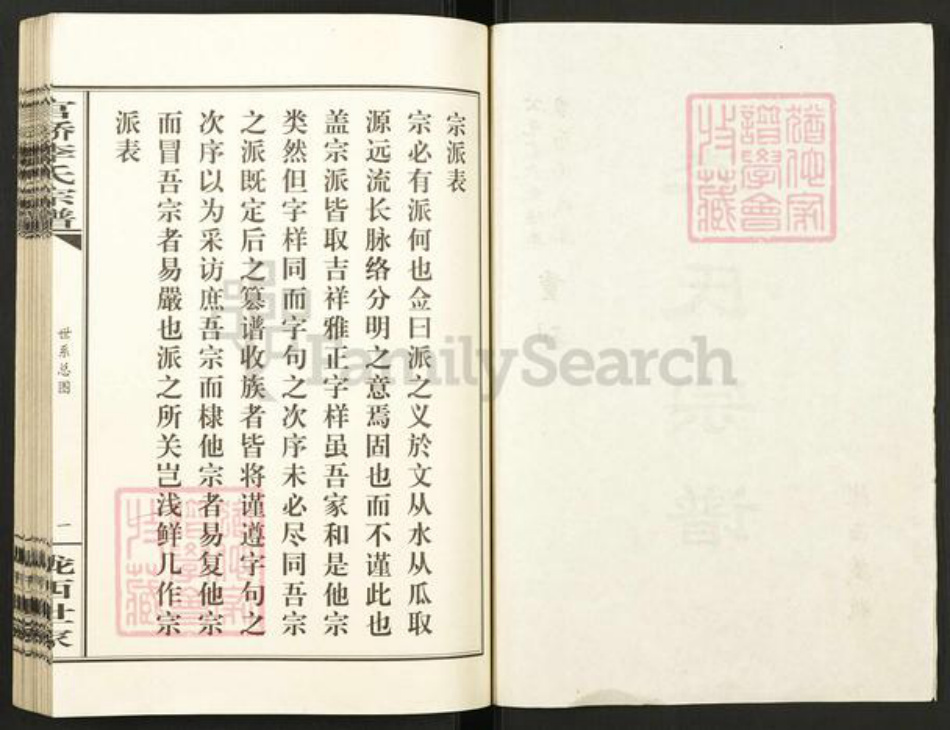 宗派表
宗必有派何也佥曰派之义於文从水从瓜取
源远流长脉络分明之意焉固也而不谨此也
盖宗派皆取吉祥雅正字样虽吾家和是他宗
类然但字样同而字句之次序未必尽同吾宗
之派既定后之纂谱收族者皆将谨遵字句之
次序以为采访庶吾宗而棣他宗者易复他宗
而冒吾宗者易嚴也派之所关岂浅鲜几作宗
派表
官桥李氏宗谱
世系总图
一
陇西世家
FamilySearch